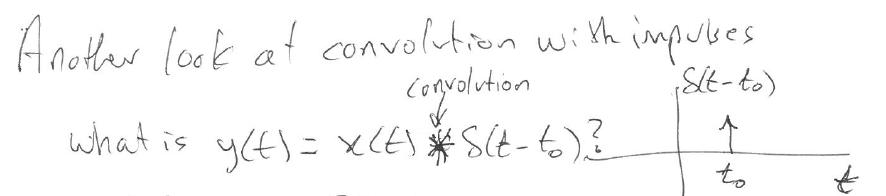 Another look at convolution with impulses
convolution
δ(t-t₀)
what is y(t) = x(t) * δ(t-t₀)?
t₀
t